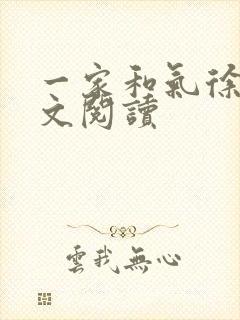 一家和氣徐
文閱讀
雲我無心